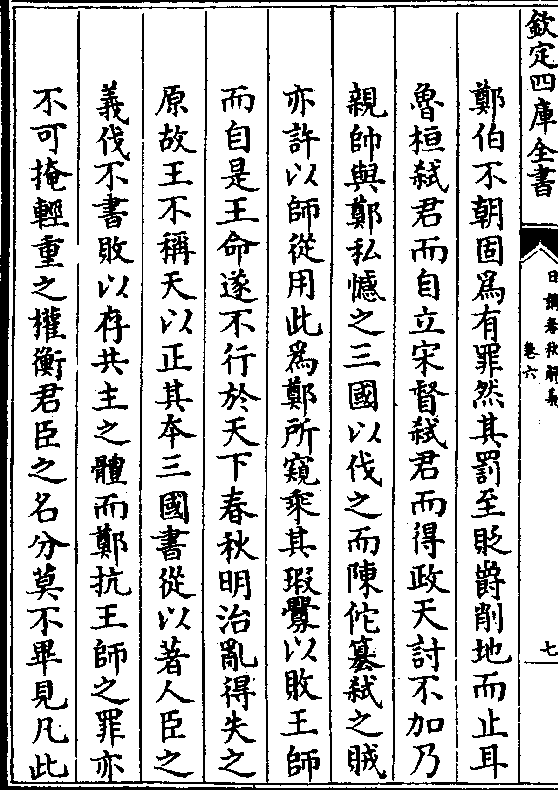 欽定四庫全書
日講春秋解義
卷六
七
鄭伯不朝固為有罪然其罰至貶爵削地而止耳
魯桓弑君而自立宋督弑君而得政天討不加乃
親帥與鄭私憾之三國以伐之而陳佗簒弑之賊
亦許以師從用此為鄭所窺乘其瑕釁以敗王師
而自是王命遂不行於天下春秋明治亂得失之
原故王不稱天以正其本三國書從以著人臣之
義伐不書敗以存共主之體而鄭抗王師之罪亦
不可掩輕重之權衡君臣之名分莫不畢見凡此